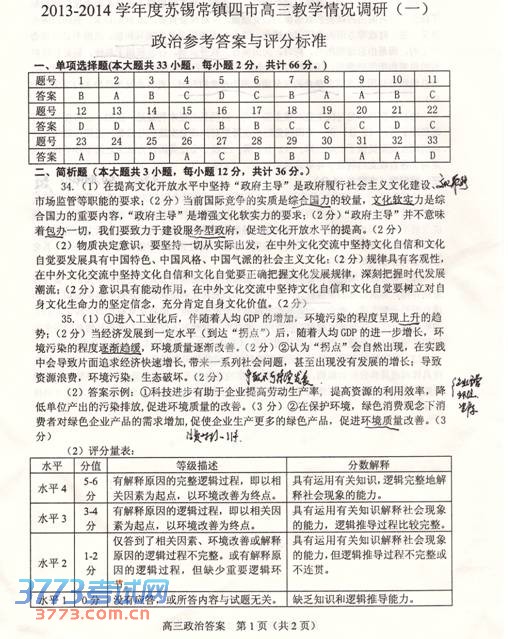 2013-2014 学年度苏锡常镇四市高三教学情况调研（一）
政治参考答案与评分标准
一、单项选择题(本大题共 33 小题，每小题 2 分，共计 66 分。)
题号 1 2 3 4 5 6 7 8 9 10 11
答案 B A B C D C B A A B C
题号 12 13 14 15 16 17 18 19 20 21 22
答案 D D A C B B C C C D C
题号 23 24 25 26 27 28 29 30 31 32 33
答案 A D D A D B B D A A B
二、简析题（本大题共 3 小题，每小题 12 分，共计 36 分。）
34.（1）在提高文化开放水平中坚持“政府主导”是政府履行社会主义文化建设、
市场监管等职能的要求；（2 分）当前国际竞争的实质是综合国力的较量，文化软实力是综
合国力的重要内容，“政府主导”是增强文化软实力的要求；（2 分）“政府主导”并不意味
着包办一切，我们要致力于建设服务型政府，促进文化开放水平的提高。（2 分）
（2）物质决定意识，要坚持一切从实际出发，在中外文化交流中坚持文化自信和文化
自觉要发展具有中国特色、中国风格、中国气派的社会主义文化；（2 分）规律具有客观性，
在中外文化交流中坚持文化自信和文化自觉要正确把握文化发展规律，深刻把握时代发展
潮流；（2 分）意识具有能动作用，在中外文化交流中坚持文化自信和文化自觉要树立对自
身文化生命力的坚定信念，充分肯定自身文化价值。（2 分）
35.（1）①进入工业化后，伴随着人均 GDP 的增加，环境污染的程度呈现上升的趋
势；（2 分）当经济发展到一定水平（到达“拐点”）后，随着人均 GDP 的进一步增长，环
境污染的程度逐渐趋缓，环境质量逐渐改善。（2 分）②认为“拐点”会自然出现，在实践
中会导致片面追求经济快速增长，带来一系列社会问题，甚至出现没有发展的增长；导致
资源浪费，环境污染，生态破坏。（2 分）
（2）答案示例：①科技进步有助于企业提高劳动生产率，提高资源的利用效率，降
低单位产出的污染排放，促进环境质量的改善。（3 分）②在保护环境，绿色消费观念下消
费者对绿色企业产品的需求增加，促使企业生产更多的绿色产品，促进环境质量改善。（3
分）
（2）评分量表：
水平 分值 等级描述 分数解释
水平 4 5-6 分 有解释原因的完整逻辑过程，即以相关因素为起点，以环境改善为终点。 具有运用有关知识，逻辑完整地解释社会现象的能力。
水平 3 3-4 分 有解释原因的逻辑过程，即以相关因素为起点，以环境改善为终点。 具有运用有关知识解释社会现象的能力，逻辑推导过程比较完整。
水平 2 1-2 分 仅答到了相关因素、环境改善或解释原因的逻辑过程不完整。或有解释原因的逻辑过程，但缺少重要逻辑环节。 具有运用有关知识解释社会现象的能力，但逻辑推导过程不完整或不连贯。
水平 1 0 分 没有应答，或所答内容与试题无关。 缺乏知识和逻辑推导能力。
3773考试网
www.3773.com.cn
高三政治答案 第 1 页（共 2 页）